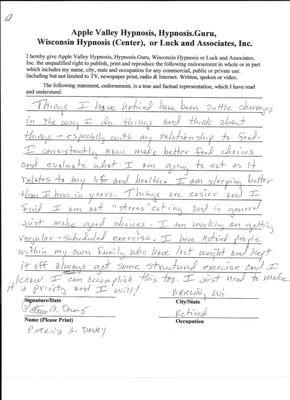 Apple Valley Hypnosis, Hypnosis.Guru,
Wisconsin Hypnosis (Center), or Luck and Associates, Inc.
I hereby give Apple Valley Hypnosis, Hypnosis.Guru, Wisconsin Hypnosis or Luck and Associates,
Inc. the unqualified right to publish, print and reproduce the following endorsement in whole or in part
which includes my name, city, state and occupation for any commercial, public or private use.
Including but not limited to TV, newspaper print, radio & Internet. Written, spoken or video.
The following statement, endorsement, is a true and factual representation, which I have read
and understand.
Things I have noticed have been suttle changes
in the way I do things and think about
things - especially with my relationship to food.
I consistently now make better food choices
and evaluate what I am going to eat as it
relates to my life and health. I am sleeping better
than I have in years. Things are easier and I
find I am not "stress" eating and in general
just make good choices. I am working on getting
regular-scheduled exercise. I have noticed people
within my own family who have lost weight and kept
it off always get some structured exercise and I
know I can accomplish this too. I just need to make
it a priority and I will!
Signature/Date
BERLIN, WI.
City/State
Patricia A. Davey
Retired
Name (Please Print)
Occupation
PATRICIA A. DAVEY